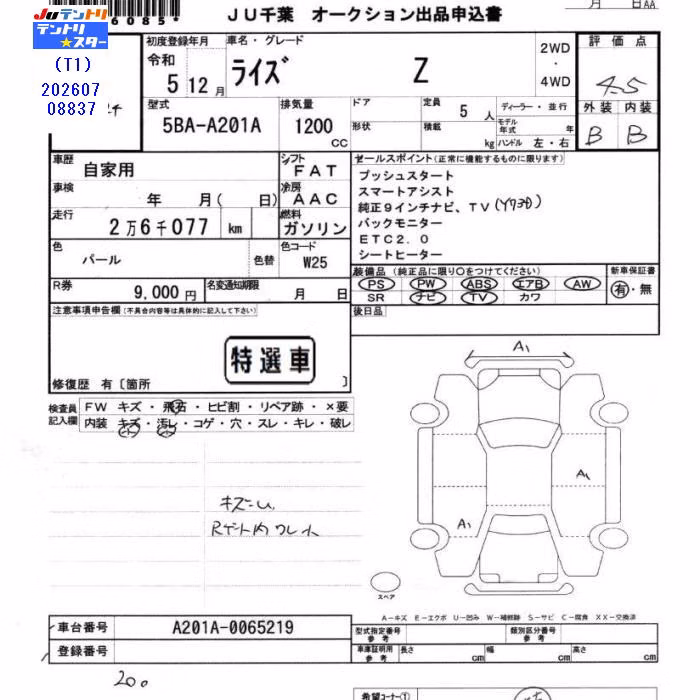 JU千葉 オークション出品申込書
月 日AA
6085
JUテントリ
テントリ★スター
(T1)
202607
08837
初度登録年月
令和
5 12月
車名・グレード
ライズ Z
2WD
・
4WD
評価点
4.5
外装 内装
B B
型式
5BA-A201A
排気量
1200
CC
ドア
形状
定員 5 人
積載 kg
ディーラー・並行
モデル年式 年
ハンドル 左・右
車歴
自家用
シフト
FAT
車検
年 月( 日)
冷房
AAC
走行
2万6千077 km
燃料
ガソリン
色
パール
色替
色コード
W25
R券
9,000円
名変通知期限
月 日
セールスポイント(正常に機能するものに限ります)
プッシュスタート
スマートアシスト
純正9インチナビ、TV
バックモニター
ETC2.0
シートヒーター
装備品(純正品に限り○をつけてください)
PS PW ABS エアB AW
SR ナビ TV カワ
新車保証書
有・無
後日品
注意事項申告欄(不具合内容等は具体的に記入して下さい)
特選車
修復歴 有〔箇所 〕
検査員
記入欄
FW キズ・飛石・ヒビ割・リペア跡・×要
内装 キズ・汚レ・コゲ・穴・スレ・キレ・破レ
A1
A1
A1
スペア
A-キズ E-エクボ U-凹み W-補修跡 S-サビ C-腐食 XX-交換済
車台番号
A201A-0065219
登録番号
型式指定番号
参考
類別区分番号
参考
車庫証明用
参考
長さ cm
幅 cm
高さ cm
希望コーナー①